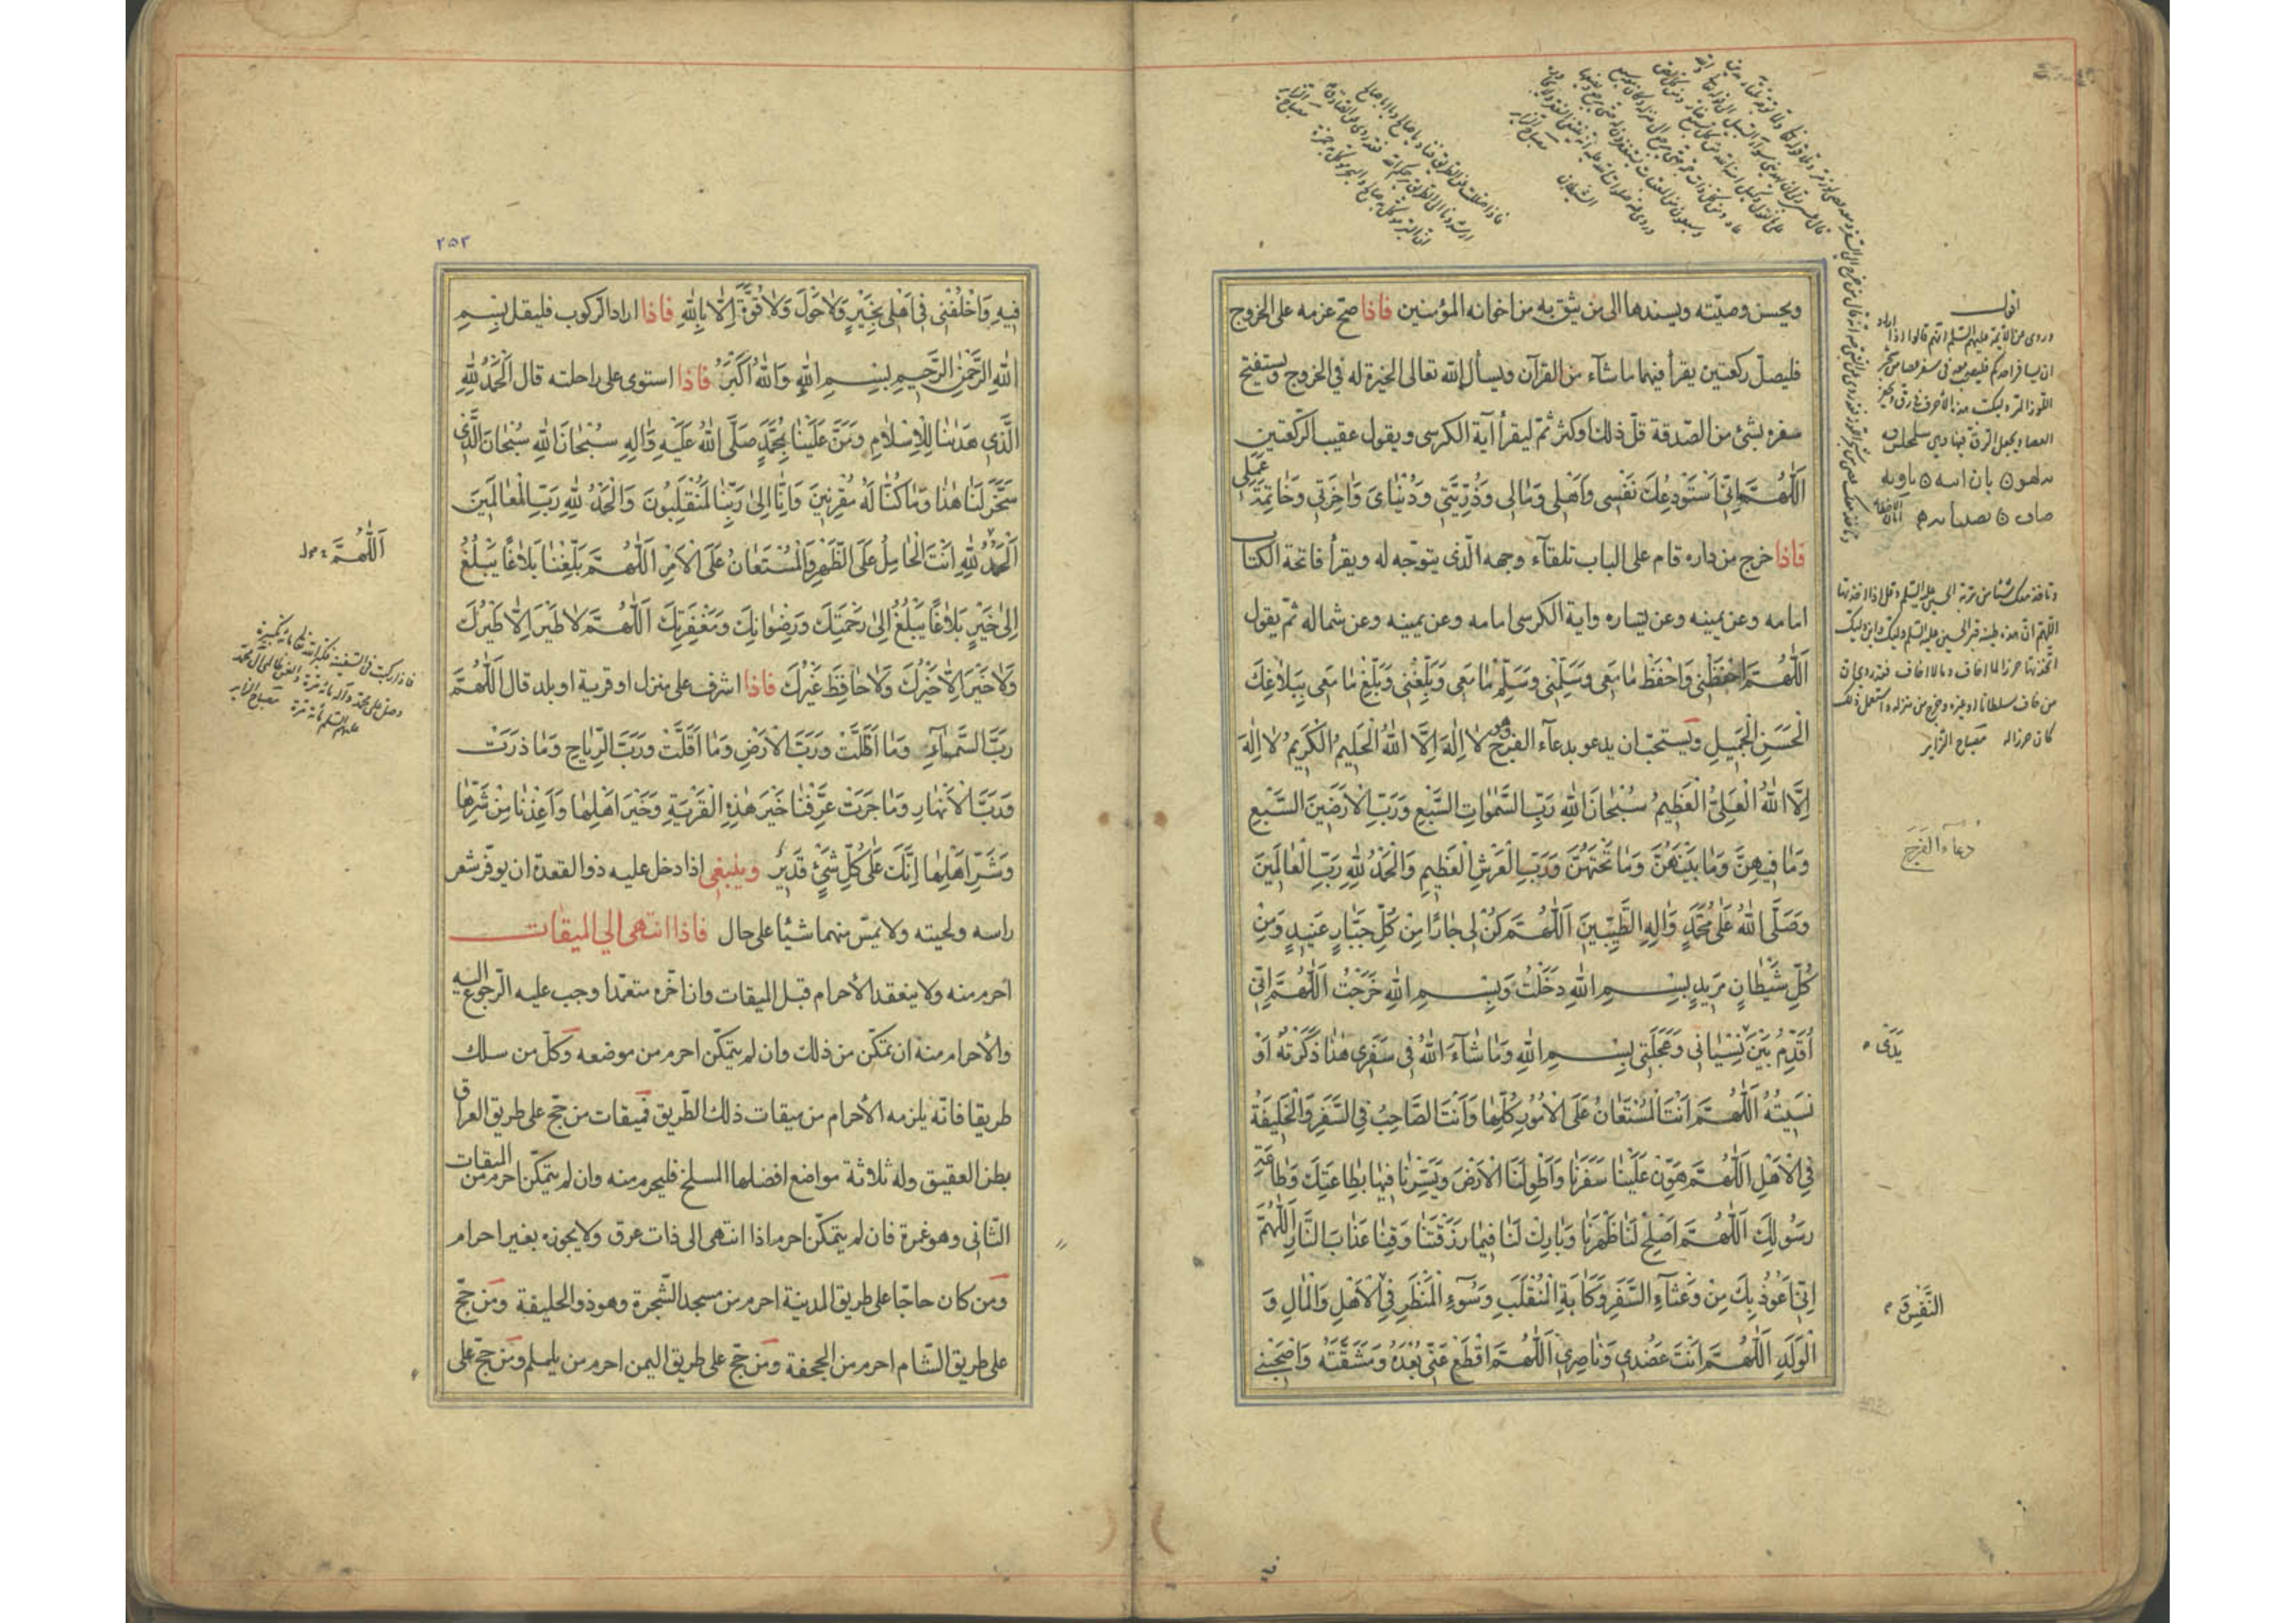 ويحسن وصيّته ويسندها الى من يثق به من اخوانه المؤمنين فاذا صحّ عزمه على الخروج
فليصلّ ركعتين يقرأ فيهما ما شآء من القرآن ويسأل الله تعالى الخيرة له في الخروج ويستفتح
سفره بشئ من الصّدقة قلّ ذلك او كثر ثمّ ليقرأ آية الكرسى ويقول عقيب الركعتين
اَللّٰهُمَّ اِنّى اَسْتَوْدِعُكَ نَفْسِى وَاَهْلى وَمٰالى وَذُرِّيَّتى وَدُنْيٰاىَ وَاٰخِرَتى وَخٰاتِمَةَ عَمَلى
فاذا خرج من داره قام على الباب تلقآء وجهه الّذى يتوجّه له ويقرأ فاتحة الكتاب
امامه وعن يمينه وعن يساره واية الكرسى امامه وعن يمينه وعن شماله ثمّ يقول
اَللّٰهُمَّ احْفَظْنى وَاحْفَظْ مٰا مَعى وَسَلِّمْنى وَسَلِّمْ مٰا مَعى وَبَلِّغْنى وَبَلِّغْ مٰا مَعى بِبَلاٰغِكَ
الْحَسَنِ الْجَميلِ ويستحبّ ان يدعو بدعآء الفرج وهو لاٰ اِلٰهَ اِلَّا اللهُ الْحَليمُ الْكَريمُ لاٰ اِلٰهَ
اِلَّا اللهُ الْعَلِىُّ الْعَظيمُ سُبْحٰانَ اللهِ رَبِّ السَّمٰوٰاتِ السَّبْعِ وَرَبِّ الْاَرَضينَ السَّبْعِ
وَمٰا فيهِنَّ وَمٰا بَيْنَهُنَّ وَمٰا تَحْتَهُنَّ وَرَبِّ الْعَرْشِ الْعَظيمِ وَالْحَمْدُ لِلّٰهِ رَبِّ الْعٰالَمينَ
وَصَلَّى اللهُ عَلٰى مُحَمَّدٍ وَاٰلِهِ الطَّيِّبينَ اَللّٰهُمَّ كُنْ لى جٰارًا مِنْ كُلِّ جَبّٰارٍ عَنيدٍ وَمِنْ
كُلِّ شَيْطٰانٍ مَريدٍ بِسْمِ اللهِ دَخَلْتُ وَبِسْمِ اللهِ خَرَجْتُ اَللّٰهُمَّ اِنّى
اُقَدِّمُ بَيْنَ نِسْيٰانى وَعَجَلَتى بِسْمِ اللهِ وَمٰا شٰآءَ اللهُ فى سَفَرى هٰذٰا ذَكَرْتُهُ اَوْ
نَسيتُهُ اَللّٰهُمَّ اَنْتَ الْمُسْتَعٰانُ عَلَى الْاُمُورِ كُلِّهٰا وَاَنْتَ الصّٰاحِبُ فِى السَّفَرِ وَالْخَليفَةُ
فِى الْاَهْلِ اَللّٰهُمَّ هَوِّنْ عَلَيْنٰا سَفَرَنٰا وَاطْوِ لَنَا الْاَرْضَ وَيَسِّرْنٰا فيهٰا بِطٰاعَتِكَ وَطٰاعَةِ
رَسُولِكَ اَللّٰهُمَّ اَصْلِحْ لَنٰا ظَهْرَنٰا وَبٰارِكْ لَنٰا فيمٰا رَزَقْتَنٰا وَقِنٰا عَذٰابَ النّٰارِ اَللّٰهُمَّ
اِنّى اَعُوذُ بِكَ مِنْ وَعْثٰآءِ السَّفَرِ وَكَاٰبَةِ الْمُنْقَلَبِ وَسُوٓءِ الْمَنْظَرِ فِى الْاَهْلِ وَالْمٰالِ وَ
الْوَلَدِ اَللّٰهُمَّ اَنْتَ عَضُدى وَنٰاصِرى اَللّٰهُمَّ اقْطَعْ عَنّى بُعْدَهُ وَمَشَقَّتَهُ وَاصْحَبْنى
اقول
وروى عن الائمة عليهم السلم انهم قالوا اذا اراد
وتاخذ معك شيئا من تربة الحسين عليه السلم وقل اذا اخذتها
اللهمّ ان هذه طينة قبر الحسين عليه السلم وليك وابن وليك
اتخذتها حرزا لما اخاف وما لا اخاف
من خاف سلطانا او غيره وخرج من منزله واستعمل ذلك
كان حرزا له مصباح الزاير
دعاء الفَرَج
يَدَىْ
النَّفيرَ
٢٥٣
فيهِ وَاخْلُفْنى فى اَهْلى بِخَيْرٍ وَلاٰ حَوْلَ وَلاٰ قُوَّةَ اِلّٰا بِاللهِ فاذا اراد الرّكوب فليقل بِسْمِ
اللهِ الرَّحْمٰنِ الرَّحيمِ بِسْمِ اللهِ وَاللهُ اَكْبَرُ فاذا استوى على راحلته قال اَلْحَمْدُ لِلّٰهِ
الَّذى هَدٰينٰا لِلْاِسْلاٰمِ وَمَنَّ عَلَيْنٰا بِمُحَمَّدٍ صَلَّى اللهُ عَلَيْهِ وَاٰلِهِ سُبْحٰانَ اللهِ سُبْحٰانَ الَّذى
سَخَّرَ لَنٰا هٰذٰا وَمٰا كُنّٰا لَهُ مُقْرِنينَ وَاِنّٰا اِلىٰ رَبِّنٰا لَمُنْقَلِبُونَ وَالْحَمْدُ لِلّٰهِ رَبِّ الْعٰالَمينَ
اَلْحَمْدُ لِلّٰهِ اَنْتَ الْحٰامِلُ عَلَى الظَّهْرِ وَالْمُسْتَعٰانُ عَلَى الْاَمْرِ اَللّٰهُمَّ بَلِّغْنٰا بَلاٰغًا يَبْلُغُ
اِلىٰ خَيْرٍ بَلاٰغًا يَبْلُغُ اِلىٰ رَحْمَتِكَ وَرِضْوٰانِكَ وَمَغْفِرَتِكَ اَللّٰهُمَّ لاٰ طَيْرَ اِلّٰا طَيْرُكَ
وَلاٰ خَيْرَ اِلّٰا خَيْرُكَ وَلاٰ حٰافِظَ غَيْرُكَ فاذا اشرف على منزل او قرية او بلد قال اَللّٰهُمَّ
رَبَّ السَّمٰآءِ وَمٰا اَظَلَّتْ وَرَبَّ الْاَرْضِ وَمٰا اَقَلَّتْ وَرَبَّ الرِّيٰاحِ وَمٰا ذَرَتْ
وَرَبَّ الْاَنْهٰارِ وَمٰا جَرَتْ عَرِّفْنٰا خَيْرَ هٰذِهِ الْقَرْيَةِ وَخَيْرَ اَهْلِهٰا وَاَعِذْنٰا مِنْ شَرِّهٰا
وَشَرِّ اَهْلِهٰا اِنَّكَ عَلٰى كُلِّ شَىْءٍ قَديرٌ وينبغى اذا دخل عليه ذو القعدة ان يوفّر شعر
راسه ولحيته ولا يمسّ منهما شيئا على حال فاذا انتهى الى الميقات
احرم منه ولا ينعقد الأحرام قبل الميقات وان اخّره متعمّدا وجب عليه الرّجوع اليه
والأحرام منه ان تمكّن من ذلك وان لم يتمكّن احرم من موضعه وكلّ من سلك
طريقا فانّه يلزمه الأحرام من ميقات ذلك الطّريق فميقات من حجّ على طريق العراق
بطن العقيق وله ثلاثة مواضع افضلها المسلخ فليحرم منه وان لم يتمكّن احرم من الميقات
الثّانى وهو غمرة فان لم يتمكّن احرم اذا انتهى الى ذات عرق ولا يجوزه بغير احرام
ومن كان حاجّا على طريق المدينة احرم من مسجد الشّجرة وهو ذو الحليفة ومن حجّ
على طريق الشّام احرم من الجحفة ومن حجّ على طريق اليمن احرم من يلملم ومن حجّ على
اَللّٰهُمَّ
فاذا ركبت فى السفينة فكبر الله تعالى مائة تكبيرة
وصل على محمد وآله مائة مرة والعن ظالمى آل محمد
عليهم السلم مائة مرة مصباح الزاير